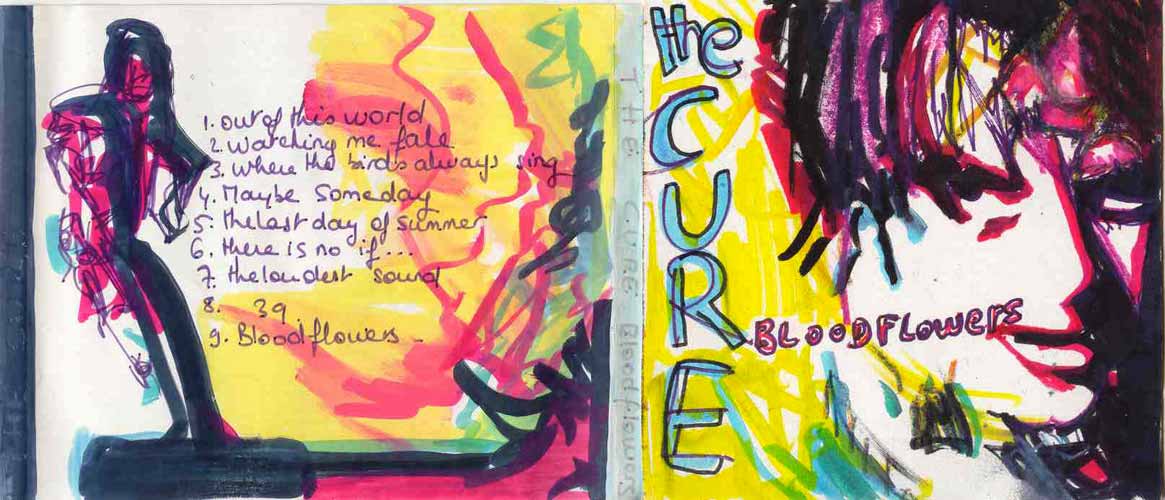 1. out of this world
2. watching me fale
3. where the birds always sing
4. Maybe someday
5. the last day of summer
6. there is no if...
7. the loudest sound
8. 39.
9. Bloodflowers
THE CURE Bloodflowers
the
CURE
BLOODFLOWERS